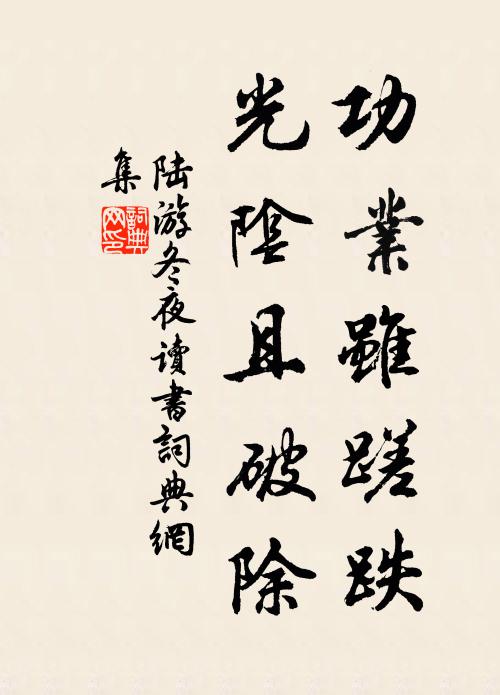 功業雖蹉跌
光陰且破除
陸游冬夜讀書詞典網
集
詞典
网印